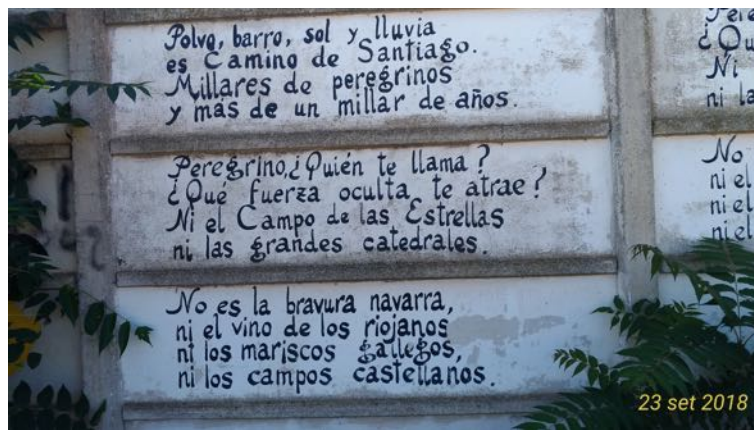 Polvo, barro, sol y lluvia
es Camino de Santiago.
Millares de peregrinos
y más de un millar de años.
Peregrino, ¿Quién te llama?
¿Qué fuerza oculta te atrae?
Ni el Campo de las Estrellas
ni las grandes catedrales.
No es la bravura navarra,
ni el vino de los riojanos
ni los mariscos gallegos,
ni los campos castellanos.
Pere
¿Qu
Ni
ni la
No
ni el
ni el
ni el
23 set 2018